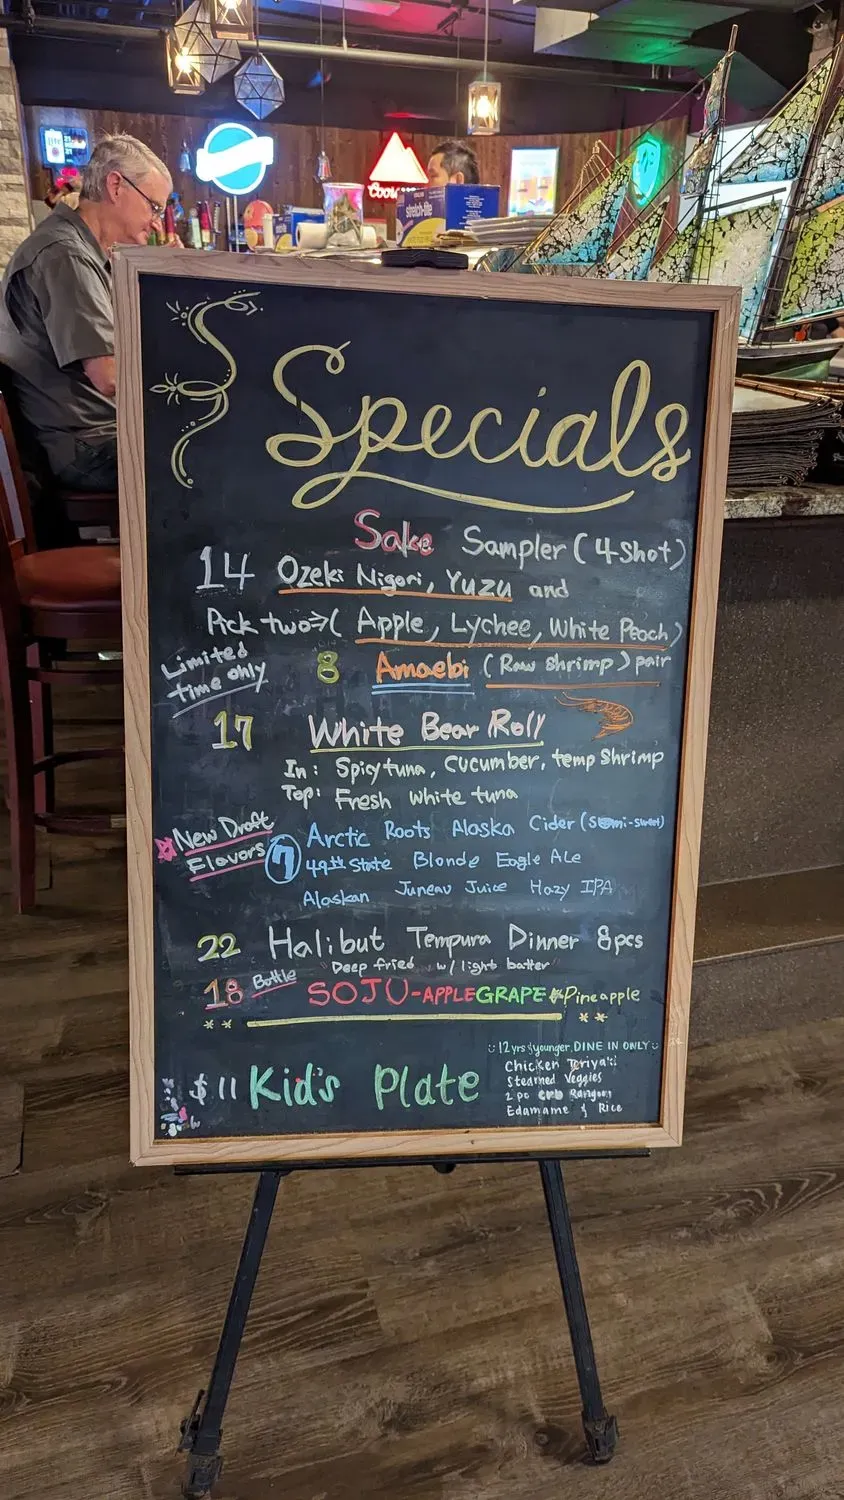 Lite
Coors
stretch-tite
Specials
Sake Sampler (4 Shot)
14 Ozeki Nigori, Yuzu and
Pick two→( Apple, Lychee, White Peach)
Limited time only
8 Amaebi (Raw shrimp) pair
17 White Bear Roll
In: Spicy tuna, cucumber, temp Shrimp
Top: Fresh white tuna
New Draft
Flavors
7
Arctic Roots Alaska Cider (Semi-sweet)
49th State Blonde Eagle Ale
Alaskan Juneau Juice Hazy IPA
22 Halibut Tempura Dinner 8pcs
"Deep fried w/ light batter"
18 Bottle SOJU-APPLE GRAPE Pineapple
$11 Kid's Plate
12yrs & younger, DINE IN ONLY
Chicken Teriyaki
Steamed Veggies
2 pc crab Rangoon
Edamame & Rice